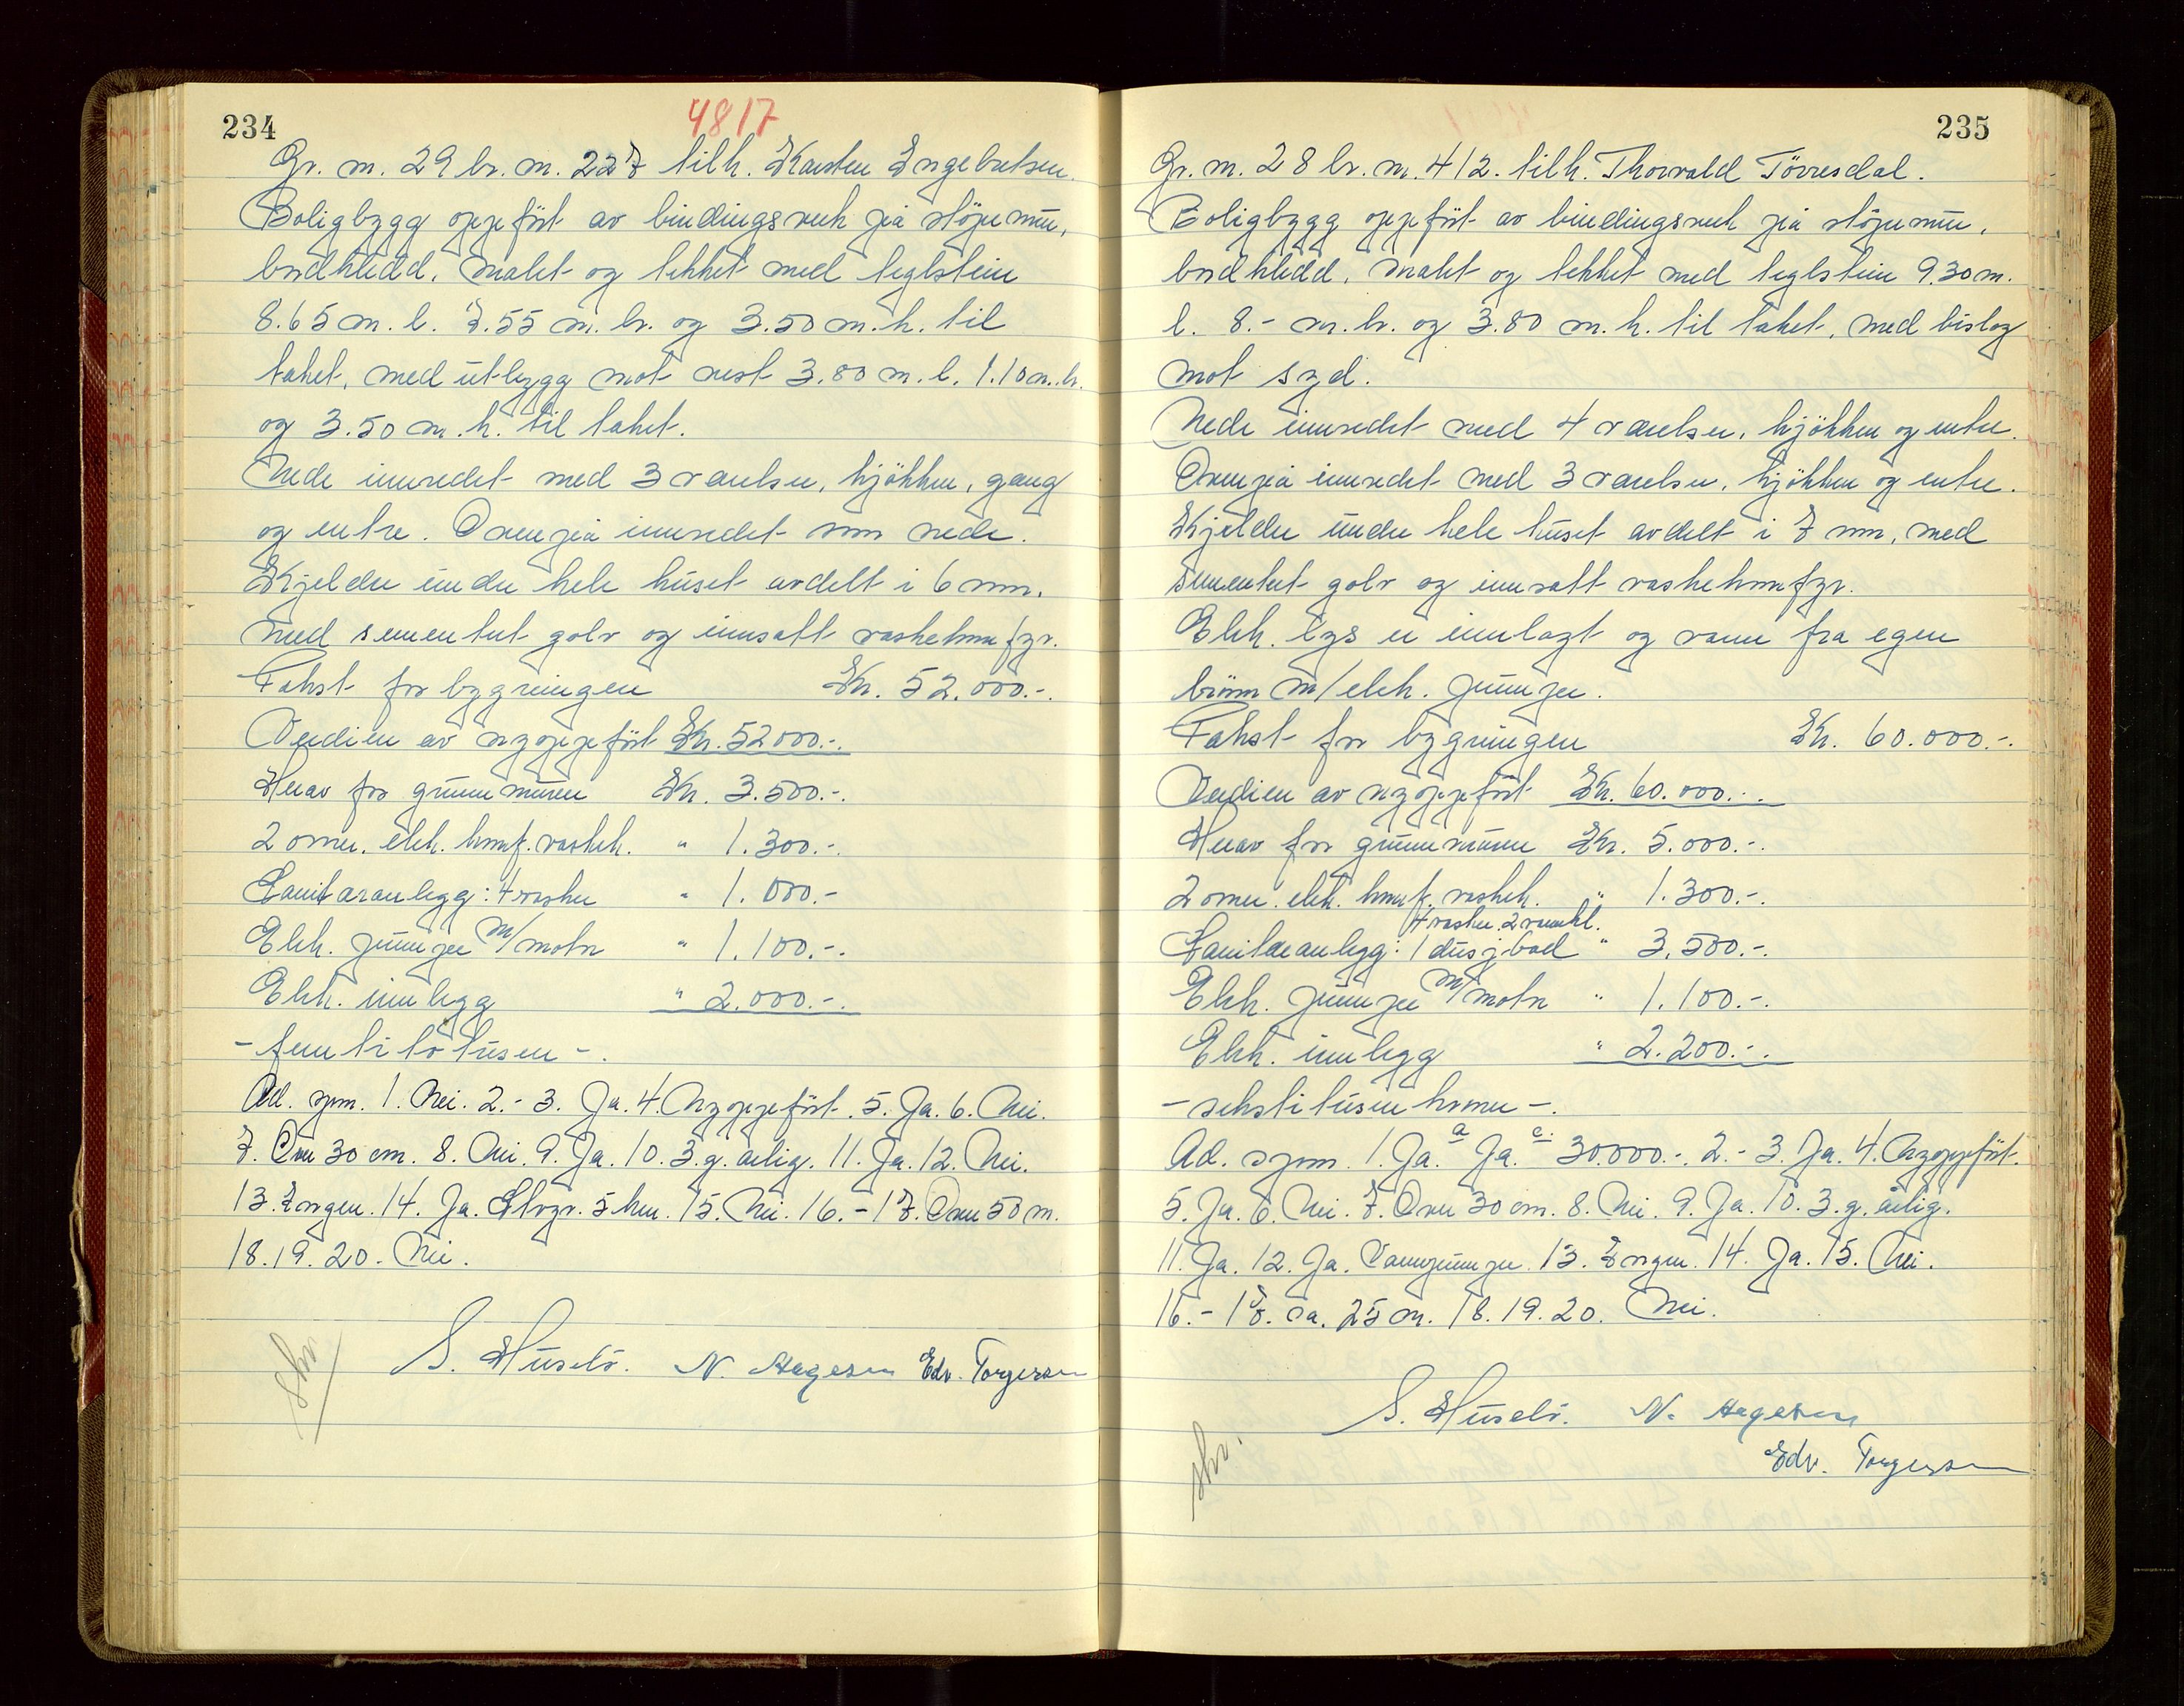 234
4817
Gr. nr. 29 br. nr. 227 tilh. Karsten Engebretsen.
Boligbygg oppført av bindingsverk på støpemur,
bordkledd, malet og tekket med teglstein
8.65 m. l. 7.55 m. br. og 3.50 m. h. til
taket, med utbygg mot vest 3.80 m. l. 1.10 m. br.
og 3.50 m. h. til taket.
Nede innredet med 3 værelser, kjøkken, gang
og entre. Ovenpå innredet som nede.
Kjelder under hele huset avdelt i 6 rom,
med sementert golv og innsatt vaskekomfyr.
Takst for bygningen Kr. 52.000.-.
Verdien av nyoppført Kr. 52000.-.
Herav for grunnmuren Kr. 3.500.-.
2 omr. elek. komf. vaskek. " 1.300.-.
Sanitæranlegg: 4 vasker " 1.000.-
Elek. pumpe m/motor " 1.100.-.
Elek. innlegg " 2.000.-.
- femtitotusen -.
Ad. spm. 1. Nei. 2.- 3. Ja. 4. Nyoppført. 5. Ja. 6. Nei.
7. Over 30 cm. 8. Nei. 9. Ja. 10. 3. g. årlig. 11. Ja. 12. Nei.
13. Ingen. 14. Ja. 5 km. 15. Nei. 16. - 17. Over 50 m.
18. 19. 20. Nei.
S. Husebø. N. Aagesen Edv. Torgersen
235
Gr. nr. 28 br. nr. 412. tilh. Thorvald Tørresdal.
Boligbygg oppført av bindingsverk på støpemur,
bordkledd, malet og tekket med teglstein 9.30 m.
l. 8.- m. br. og 3.80 m. h. til taket, med bislag
mot syd.
Nede innredet med 4 værelser, kjøkken og entre.
Ovenpå innredet med 3 værelser, kjøkken og entre.
Kjelder under hele huset avdelt i 7 rom, med
sementert golv og innsatt vaskekomfyr.
Elek. lys er innlagt og vann fra egen
brønn m/elek. pumpe.
Takst for bygningen Kr. 60.000.-.
Verdien av nyoppført Kr. 60.000.-.
Herav for grunnmuren Kr. 5.000.-.
2 omr. elek. komf. vaskek. " 1.300.-.
4 vasker 2 vannkl.
Sanitæranlegg: 1 dusjbad " 3.500.-.
Elek. pumpe m/motor " 1.100.-.
Elek. innlegg " 2.200.-.
- sekstitusen kroner -.
Ad. spm. 1. Ja. a Ja. c. 30.000.-. 2.- 3. Ja. 4. Nyoppført.
5. Ja. 6. Nei. 7. Over 30 cm. 8. Nei. 9. Ja. 10. 3. g. årlig.
11. Ja. 12. Ja. Vannpumpe. 13. Ingen. 14. Ja. 15. Nei.
16. - 17. ca. 25 m. 18. 19. 20. Nei.
S. Husebø. N. Aagesen
Edv. Torgersen